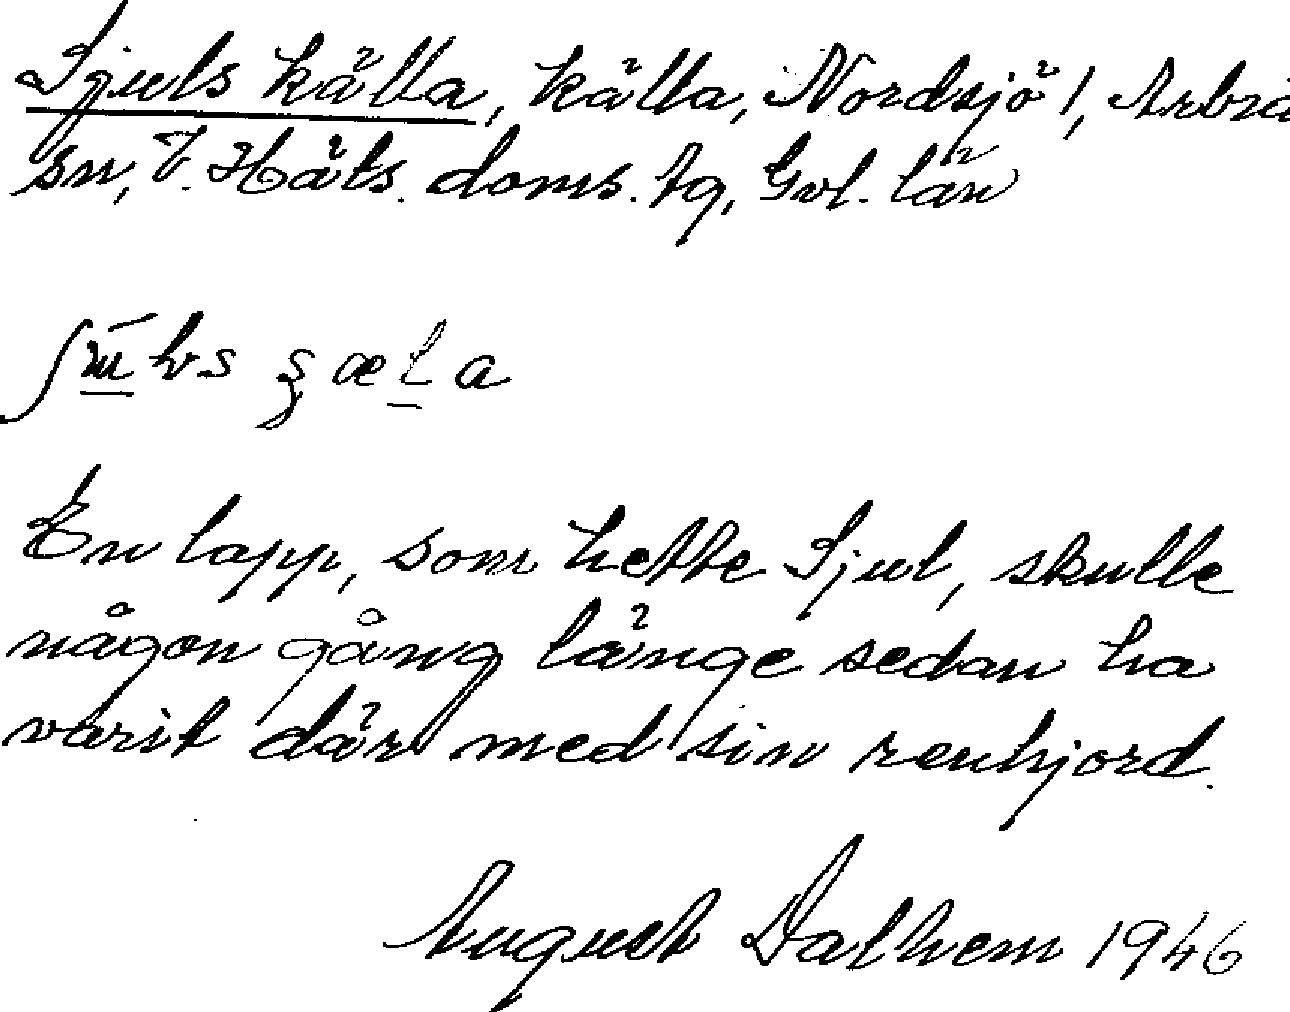 Sjuls källa, källa, Nordsjö 1, Arbrå
sn, V. Häls. doms. tg, Gvl. län
En lapp, som hette Sjul, skulle
någon gång länge sedan ha
varit där med sin renhjord.
August Dalhem 1946